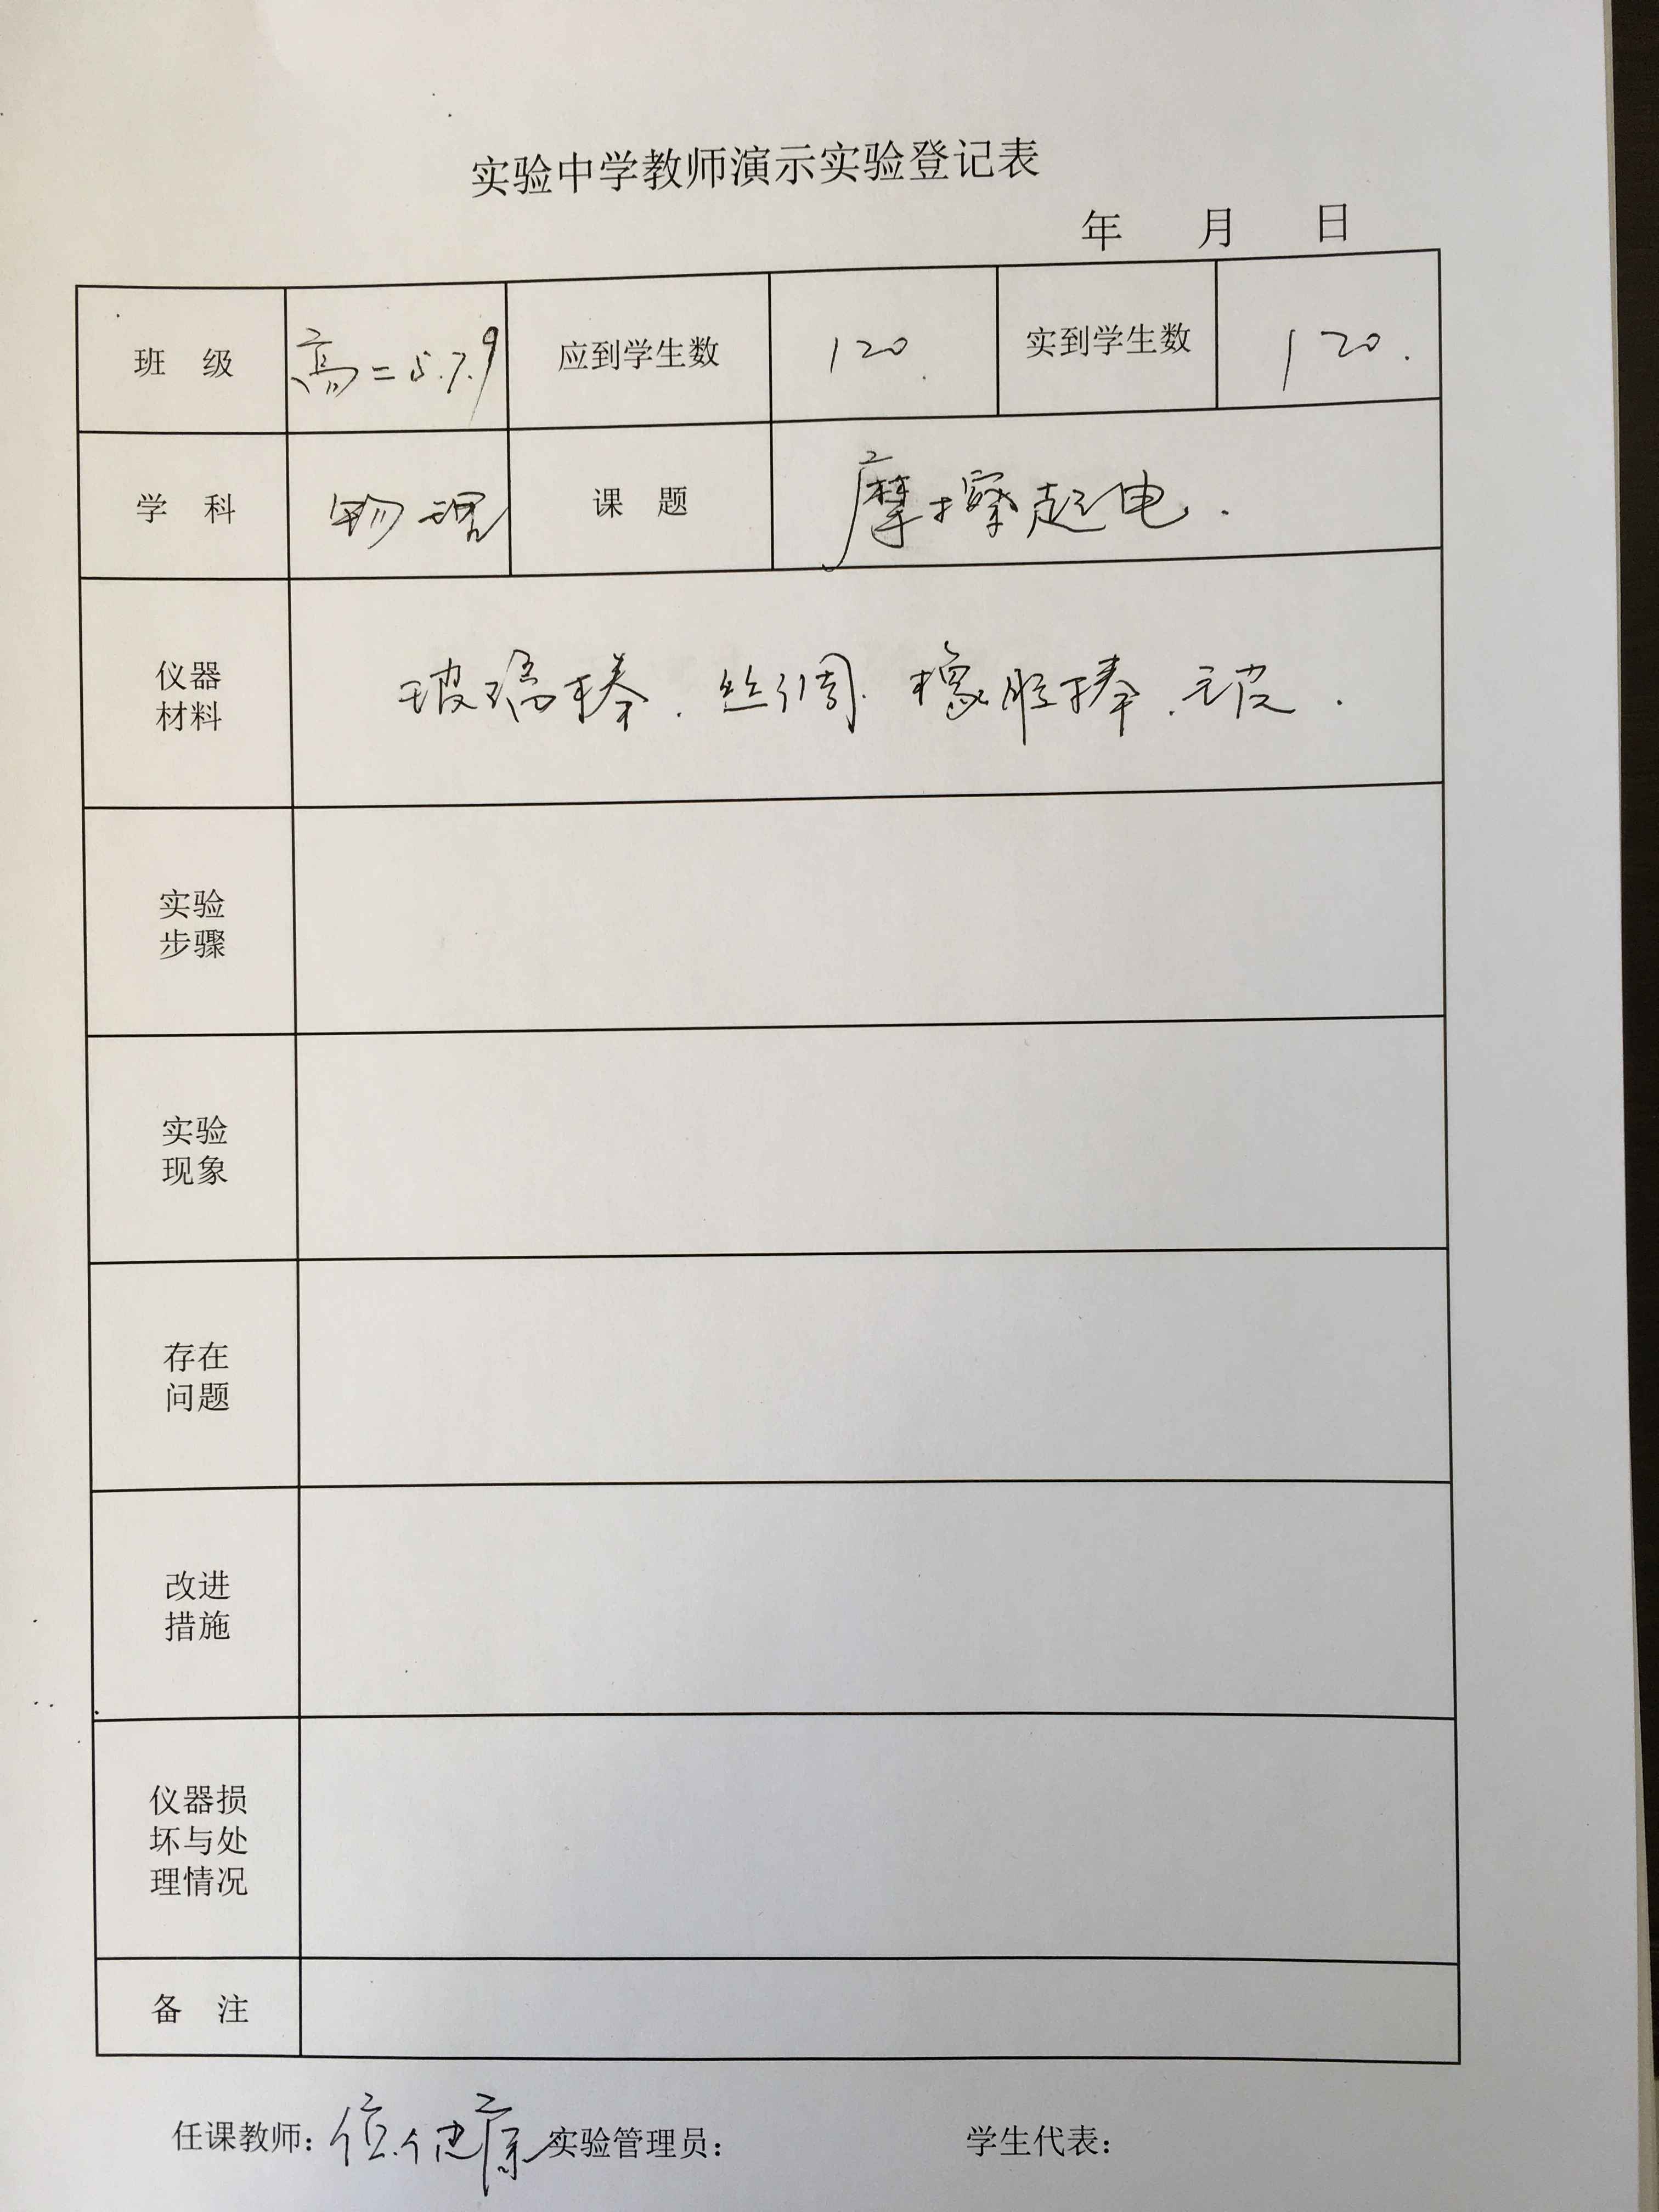 实验中学教师演示实验登记表
年 月 日
班 级 高二5.7.9 应到学生数 120. 实到学生数 120.
学 科 物理 课 题 摩擦起电.
仪器材料 玻璃棒. 丝绸. 橡胶棒. 毛皮.
实验步骤
实验现象
存在问题
改进措施
仪器损坏与处理情况
备 注
任课教师： 实验管理员： 学生代表：